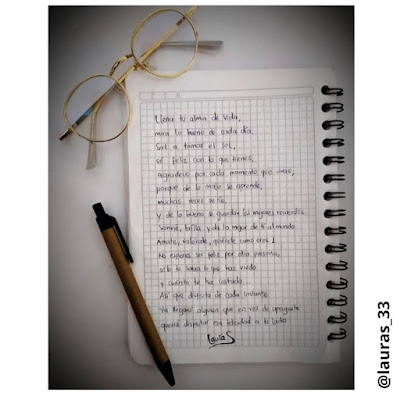 Llena tu alma de vida,
mira lo bueno de cada día,
Sal a tomar el sol,
sé feliz con lo que tienes,
agradece por cada momento que vives,
porque de lo malo se aprende,
muchas veces se ríe,
Y de lo bueno se guardan los mejores recuerdos.
Sonríe, brilla y da lo mejor de ti al mundo
Amate, valórate, quiérete como eres!
No esperes ser feliz por otra persona,
sólo tú sabes lo que has vivido
y cuánto te ha costado.
Así que disfruta de cada instante
Ya llegará alguien que en vez de apagarte
querrá disfrutar esa felicidad a tu lado
LauraS
@lauras_33